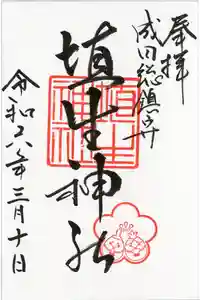 奉拝
成田総鎮守
埴生神社
令和六年三月十日